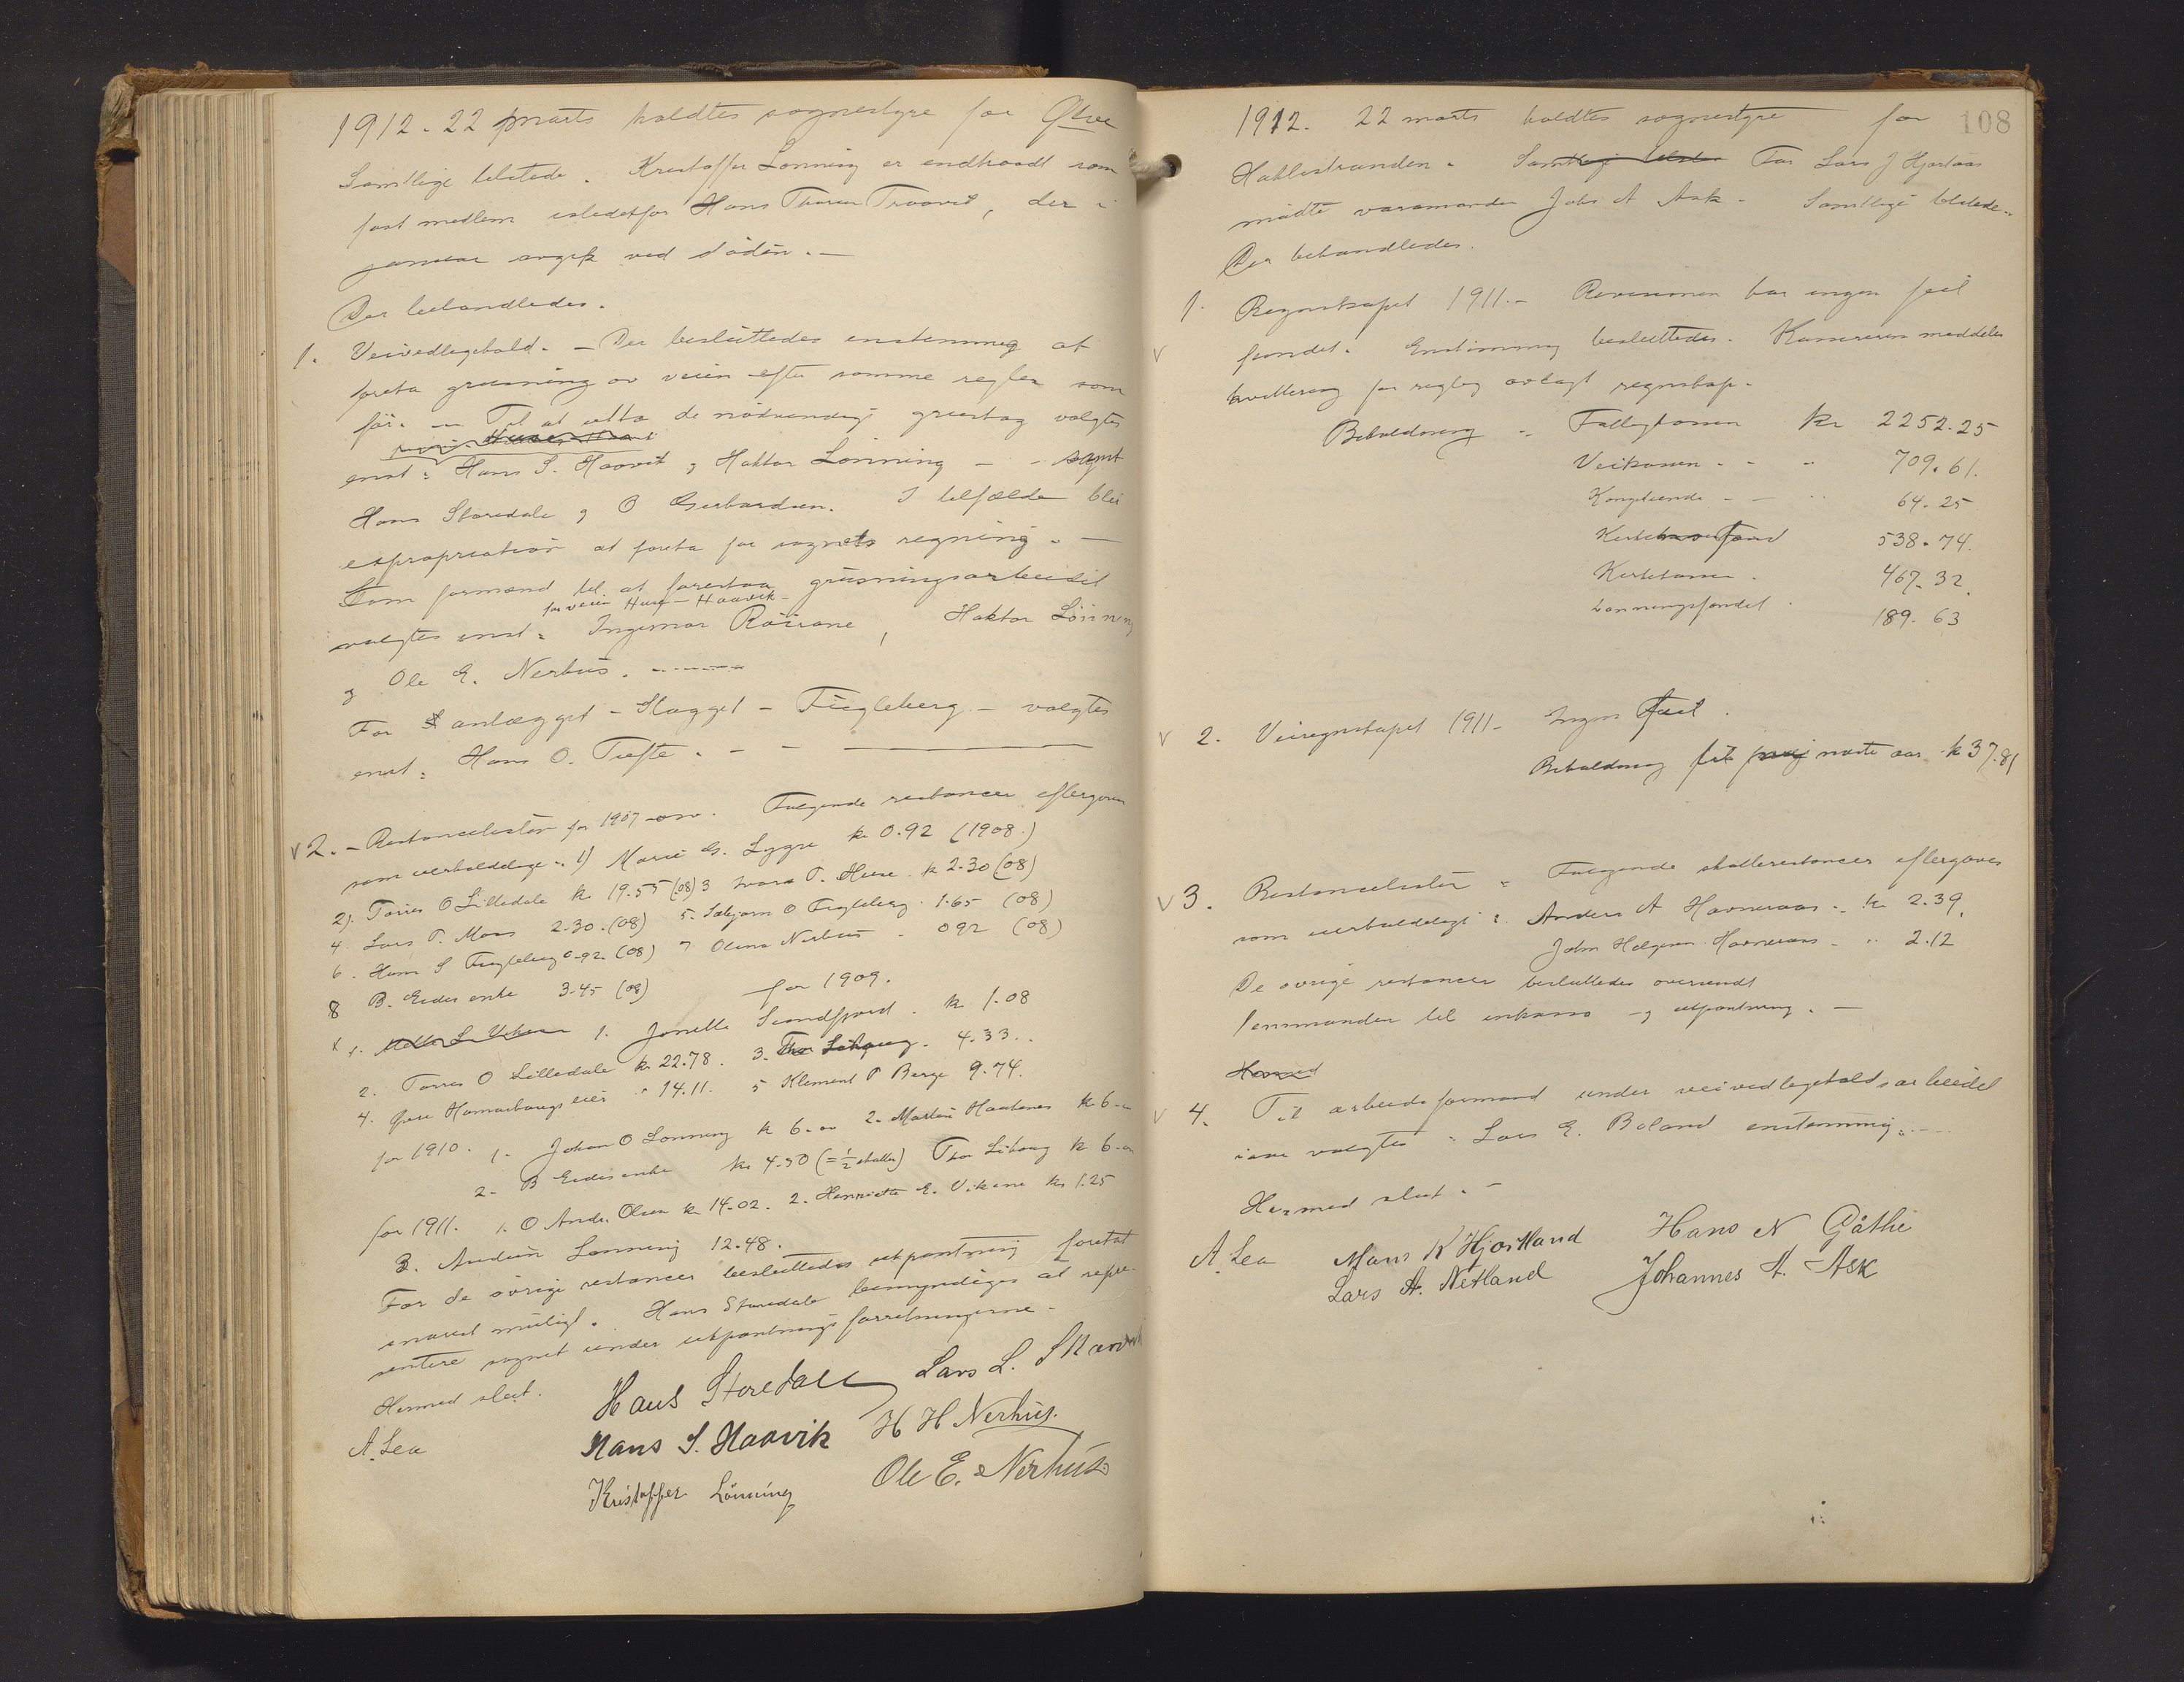 1912. 22 marts holdtes sognestyre for Ølve
Samtlige tilstede. Kristoffer Lønning er indtraadt som
fast medlem istedetfor Hans Thoresen Traavik, der i
januar avgik ved døden. —
Der behandledes.
1. Veivedligehold. — Der besluttedes enstemmig at
foreta grusning av veien efter samme regler som
før. — Til at utta de nødvendige grustag valgtes
enst: Hans S. Haavik og Haktor Lønning — - samt
Hans Storedale og O Gerhardsen. I tilfælde blir
expropriation at foreta for sognets regning. —
Som formænd til at forestaa grusningsarbeidet
for veien Huse – Haavik –
valgtes enst: Ingemar Røirane, Haktor Lønning
og Ole E. Nerhus. -------
For anlægget – Skagget – Fugleberg – valgtes
enst: Hans O. Tufte. - - ———
v 2. - Restancelister for 1907 Følgende restancer eftergives
som uerholdelige: 1) Marie G. Lygre kr 0.92 (1908.)
2). Torris O Lilledale kr 19.55 (08) 3 Ivara T. Huse. k 2.30 (08)
4. Lars T. Moss 2.30. (08) 5. Sæbjørn O Fugleberg. 1.65 (08)
6. Hans S Fugleberg 0.92 (08) 7 Olena Nerhus - 092 (08)
8 B. Eides enke 3.45 (08) for 1909.
1. Jonette Sandfjord. k 1.08
2. Torris O Lilledale kr 22.78. 3. Thor Lihaug. 4.33..
4. Hamarhaugs eier " 14.11. 5 Klement P Berge 9.74.
for 1910. 1. Johan O Lønning k 6.00 2. Martin Haatenes k 6.-
2- B Eides enke kr 4.50 (= 1/2 skatten) Thor Lihaug k 6.-
for 1911. 1. O Andr. Olsen kr 14.02. 2. Henriette E. Vikane kr 1.25
3. Andreas Lønning 12.48.
For de øvrige restancer besluttedes utpantning foretat
snarest muligt. Hans Storedale bemyndiges at repre-
sentere sognet under utpantningsforretningerne. -
Hermed slut.
A. Lea
Hans Storedale Lars L.
Hans S. Haavik H H Nerhus.
Kristoffer Lönning Ole E. Nerhus.
108
1912. 22 marts holdtes sognestyre for
Hatlestranden. Samtlige tilstede For Lars J Hjortaas
mødte varamanden Johs A Ask - Samtlige tilstede..
Der behandledes.
1. Regnskapet 1911. - Revisionen har ingen feil
v fundet. Enstemmig besluttedes. Kæmneren meddeles
kvittering for rigtig avlagt regnskap.
Beholdning - Fattigkassen kr 2252.25
Veikassen - - " 709.61.
Kongetiende - — " 64.25
Kirkefond 538.74.
Kirkekassen - 467.32.
Lønningsfondet. 189.63
v 2. Veiregnskapet 1911 - Ingen feil.
Beholdning til næste aar k 37.81
v 3. Restancelister: Følgende skatterestancer eftergives
som uerholdelige: Anders A Havneraas .. kr 2.39.
John Helgesen Havneraas - " 2.12
De øvrige restancer besluttedes oversendt
lensmanden til inkasso og utpantning. —
Hermed
v 4. Til arbeidsformand under veivedlegeholdsarbeidet
iaar valgtes: Lars E. Boland enstemmig. —
Hermed slut. -
A. Lea Mans N Hjortland Hans N Gåthe
Lars A. Netland Johannes A. Ask